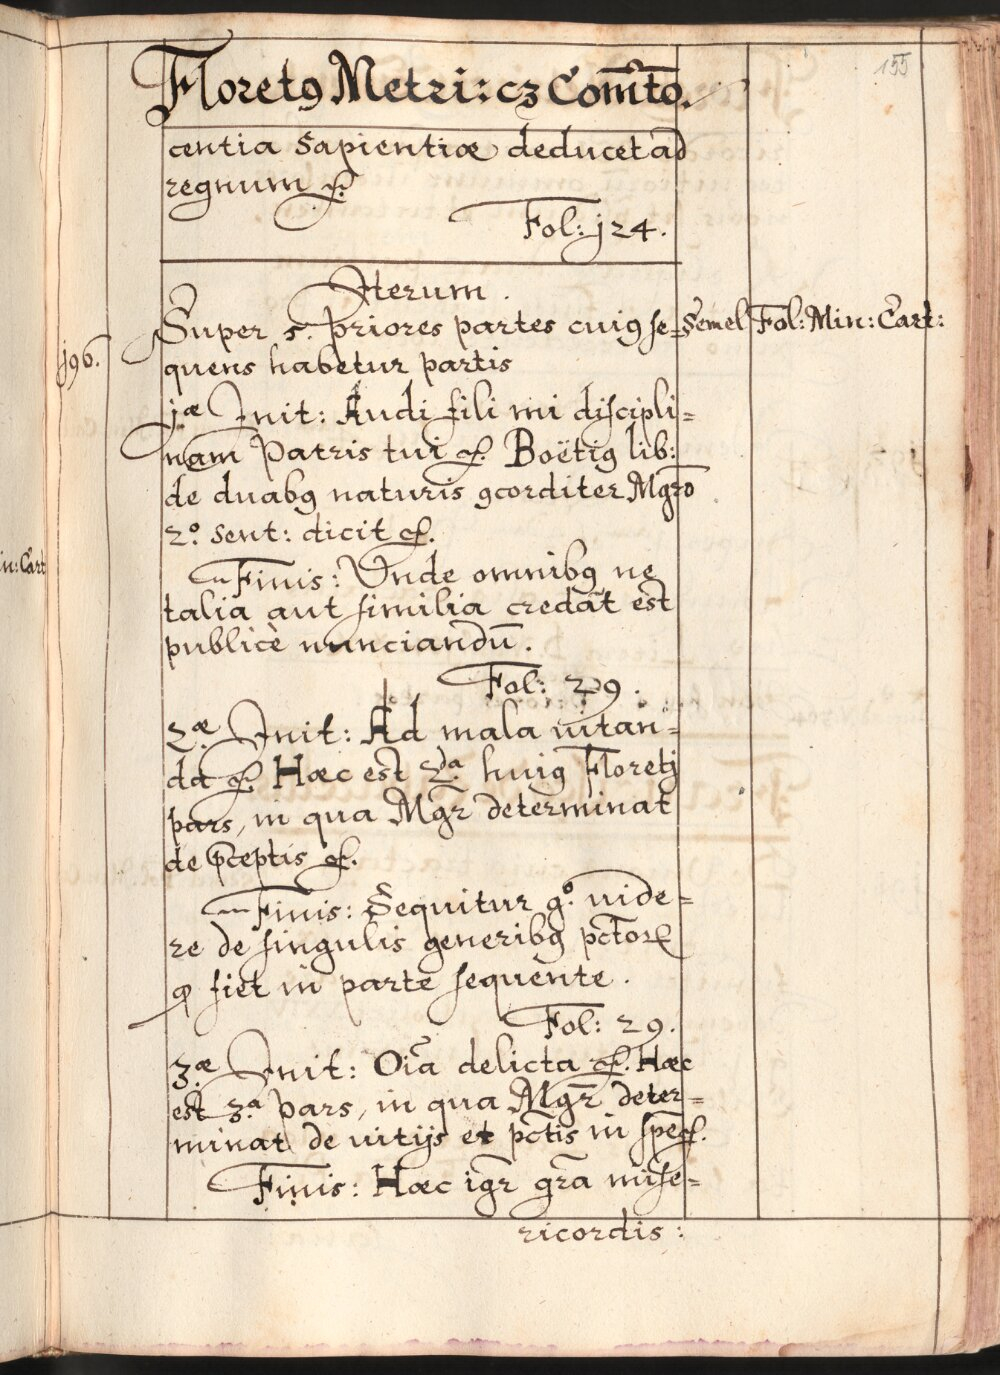 155
Floretꝰ Metri: cȝ Com̄to.
centia Sapientiæ deducet ad
regnum ꝛc.
Fol: j24.
Iterum.
Super 5. priores partes cuiꝰ se= Semel Fol: Min: Cart:
j96.
quens habetur partis
jæ Init: Audi fili mi discipli=
nam Patris tui ꝛc. Boëtiꝰ lib:
de duabꝰ naturis ꝯcorditer Mgr̄o
2.º sent: dicit ꝛc.
in: Cart
Finis: Vnde omnibꝰ ne
talia aut similia credāt est
publicè nunciandū.
Fol: 29.
2.æ Init: Ad mala uitan=
da ꝛc. Hæc est 2.da huiꝰ Floretj
pars, in qua Mgr̄ determinat
de p̄ceptis ꝛc.
Finis: Sequitur g.º uide=
re de singulis generibꝰ pc̄torꝝ
ꝙ fiet in parte sequente.
Fol: 29.
3.æ Init: Oīa delicta ꝛc. Hæc
est 3.a Pars, in qua Mgr̄ deter=
minat de uitijs et pc̄tis in spē ꝛc.
Finis: Hæc igr̄ gr̄a mise=
ricordis: